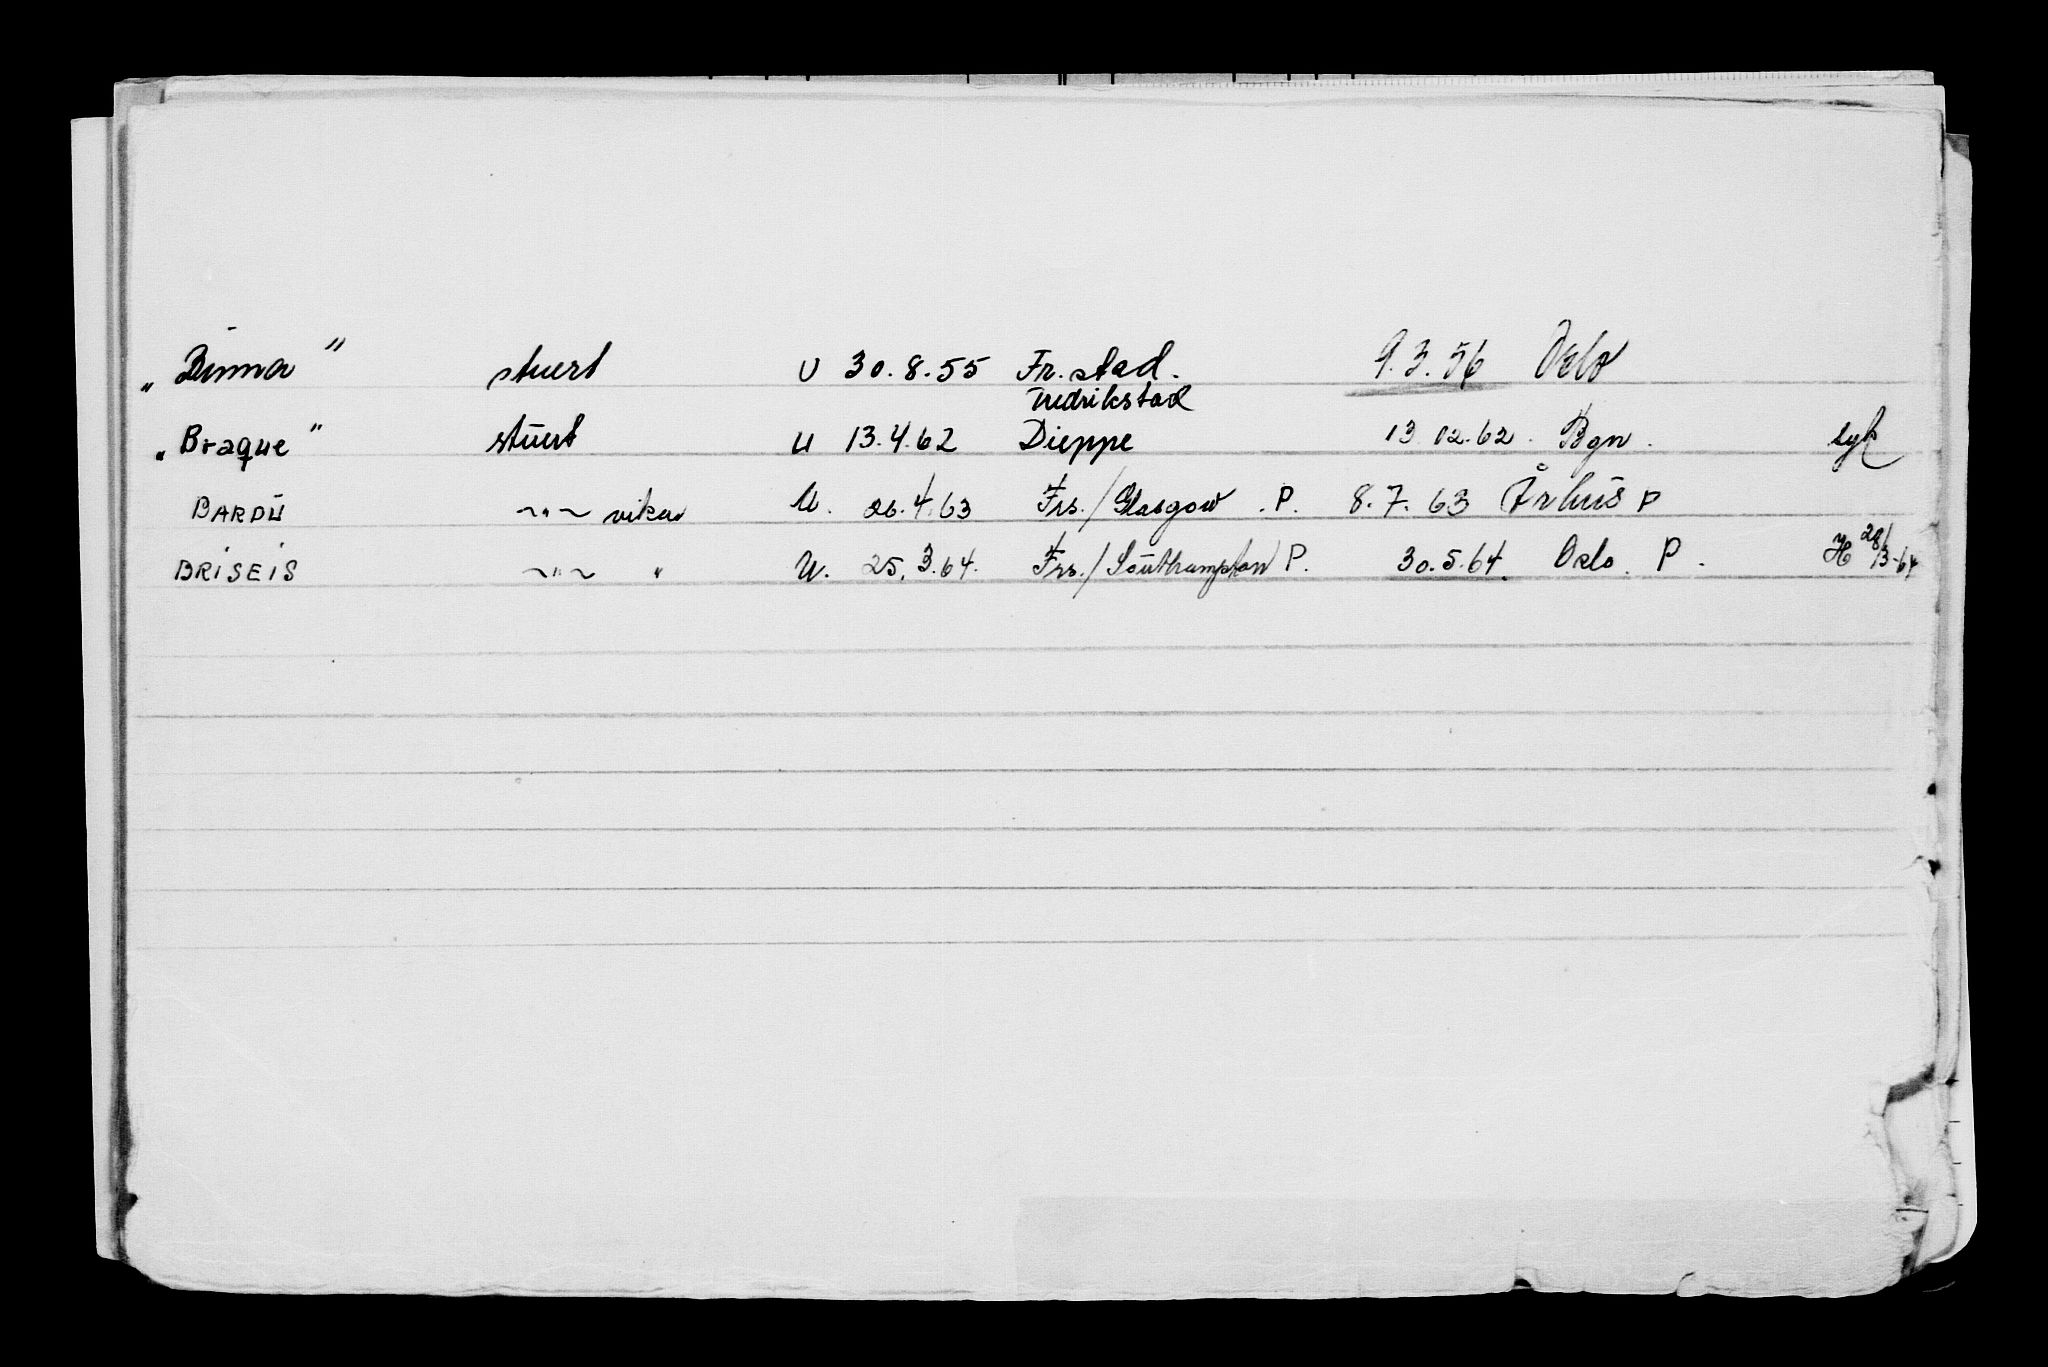 „ Binna " stuert U 30.8.55 Fr.stad. 9.3.56 Oslo
Fredrikstad
„ Braque " stuert U 13.4.62 Dieppe 13.02.62. Bgn. syk
BARDU ~"~ vikar U. 26.4.63 Frs./Glasgow .P. 8.7.63 Århus P
BRISEIS ~"~ " U. 25.3.64. Frs./Southampton P. 30.5.64. Oslo. P. H 28/3-64